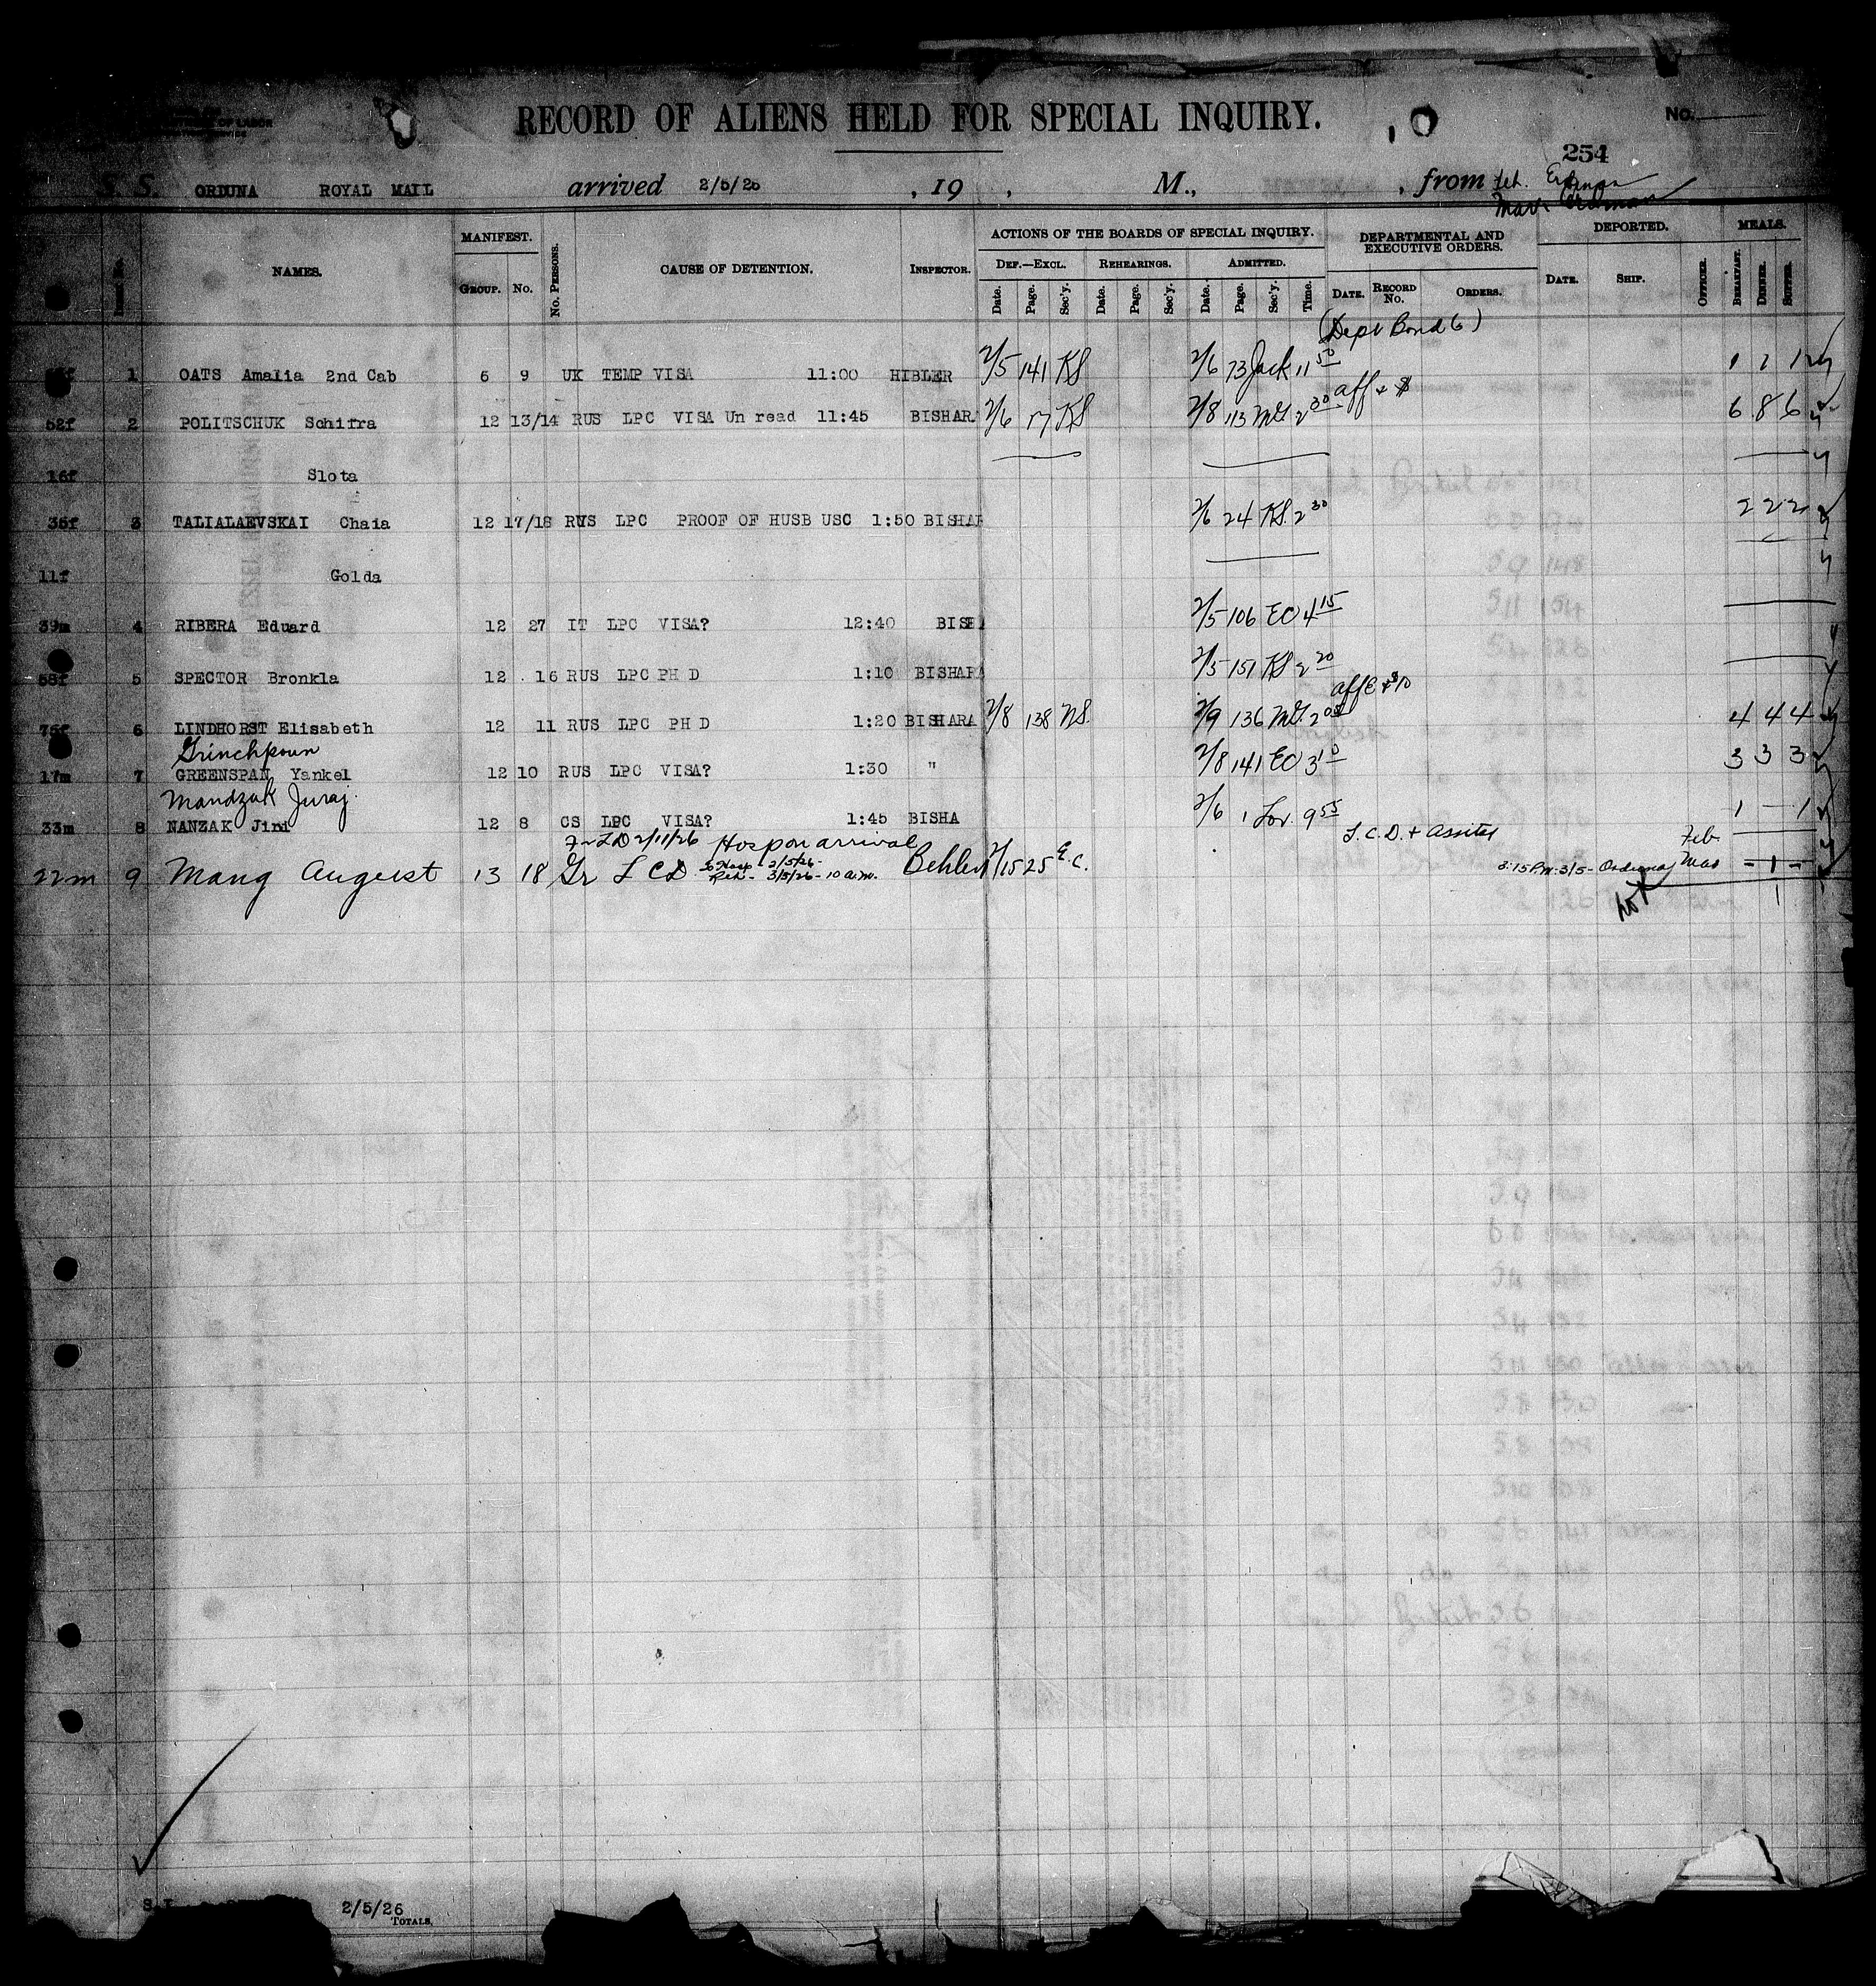 OF LABOR
SERVICE
RECORD OF ALIENS HELD FOR SPECIAL INQUIRY.
No.
254
S. S. ORDUNA ROYAL MAIL arrived 2/5/26 , 19 , M., , from
MANIFEST.
ACTIONS OF THE BOARDS OF SPECIAL INQUIRY.
DEPARTMENTAL AND EXECUTIVE ORDERS.
DEPORTED.
MEALS.
NAMES.
GROUP. No. No. PERSONS.
CAUSE OF DETENTION.
INSPECTOR.
DEF.—EXCL. REHEARINGS. ADMITTED.
Date. Page. Sec'y. Date. Page. Sec'y. Date. Page. Sec'y. Time.
DATE. RECORD No. ORDERS.
DATE. SHIP. OFFICER.
BREAKFAST. DINNER. SUPPER.
(Dept Bond 6)
1 OATS Amalia 2nd Cab 6 9 UK TEMP VISA 11:00 HIBLER 2/5 141 KS 2/6 73 Jack 11 50 1 1 1
aff + $
52f 2 POLITSCHUK Schifra 12 13/14 RUS LPC VISA Un read 11:45 BISHARA 2/6 17 KS 2/8 113 McG 2 30 6 8 6
16f Slota
35f 3 TALIALAEVSKAI Chaia 12 17/18 RUS LPC PROOF OF HUSB USC 1:50 BISHAR 2/6 24 KS. 2 30 2 2 2
11f Golda
39m 4 RIBERA Eduard 12 27 IT LPC VISA? 12:40 BISH 2/5 106 EC 4 15
58f 5 SPECTOR Bronkla 12 16 RUS LPC PH D 1:10 BISHARA 2/5 151 KS 2 20
aff + $10
75f 6 LINDHORST Elisabeth 12 11 RUS LPC PH D 1:20 BISHARA 2/8 138 NS. 2/9 136 McG. 2 05 4 4 4
Grinchpoun
17m 7 GREENSPAN Yankel 12 10 RUS LPC VISA? 1:30 " 2/8 141 EC 3 10 3 3 3
Mandzak Juraj.
33m 8 NANZAK Jini 12 8 CS LPC VISA? 1:45 BISHA 2/6 1 Lor. 9 55 1 — 1
LCD 2/11/26 Hosp on arrival
L.C.D. + Assites Feb.
22m 9 Mang August 13 18 Gr LCD to Hosp - 2/5/26 - Reh - 3/5/26 - 10 a.m. 2/15 25 E.C. 3:15 P.M. 3/5 - Orduna Mar - 1 -
1
2/5/26
TOTALS.